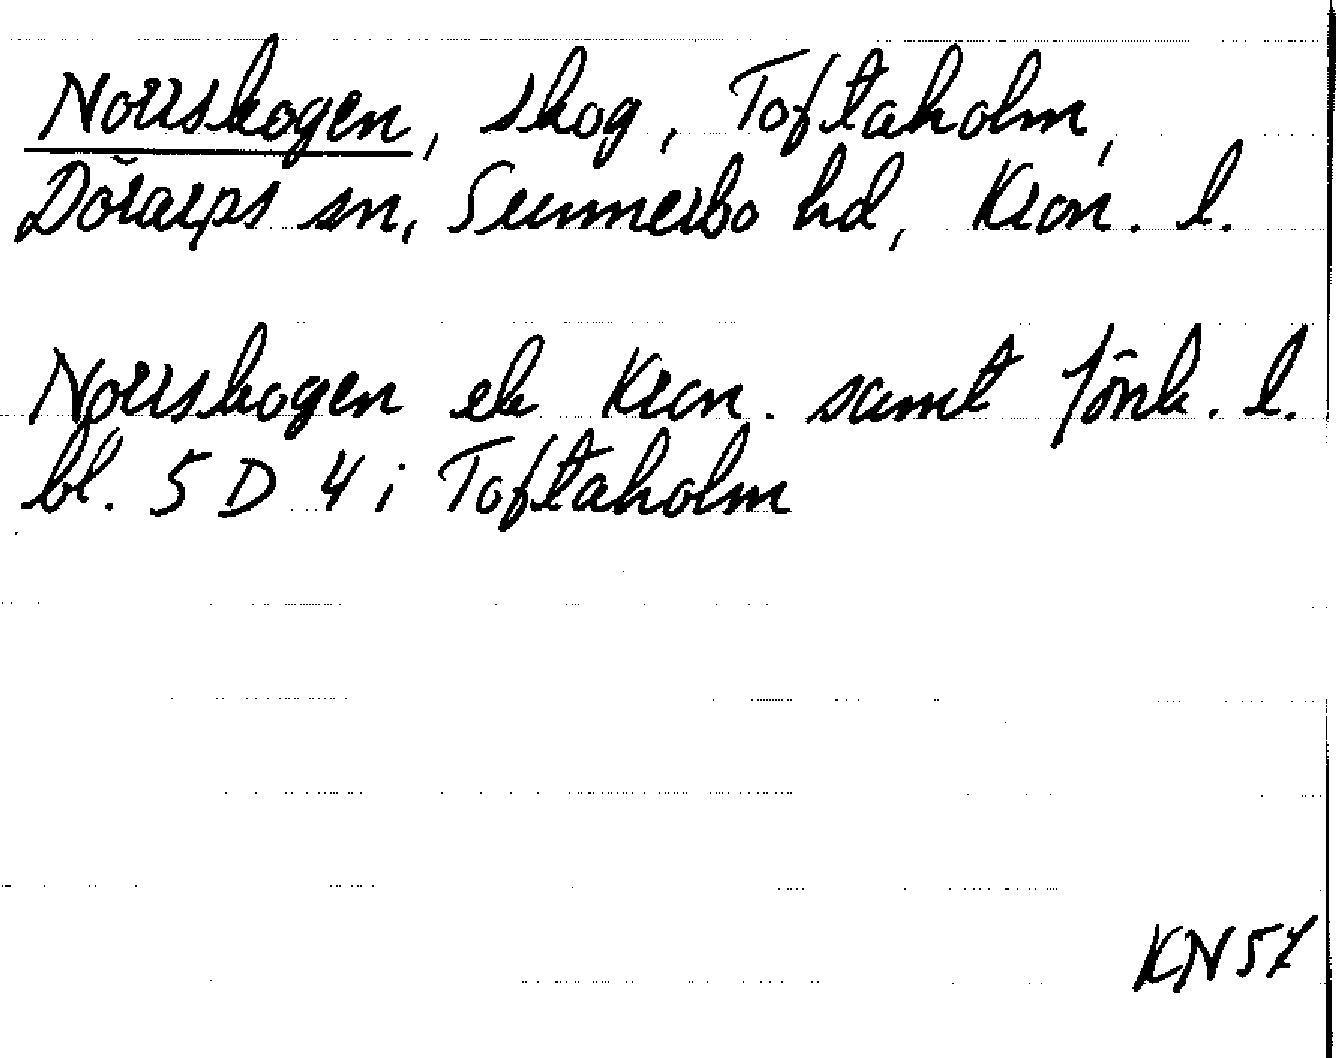 Norrskogen, skog, Toftaholm,
Dörarps sn, Sunnerbo hd, Kron. l.
Norrskogen ek Kron. samt Jönk. l.
bl. 5 D 4 i Toftaholm
KN57